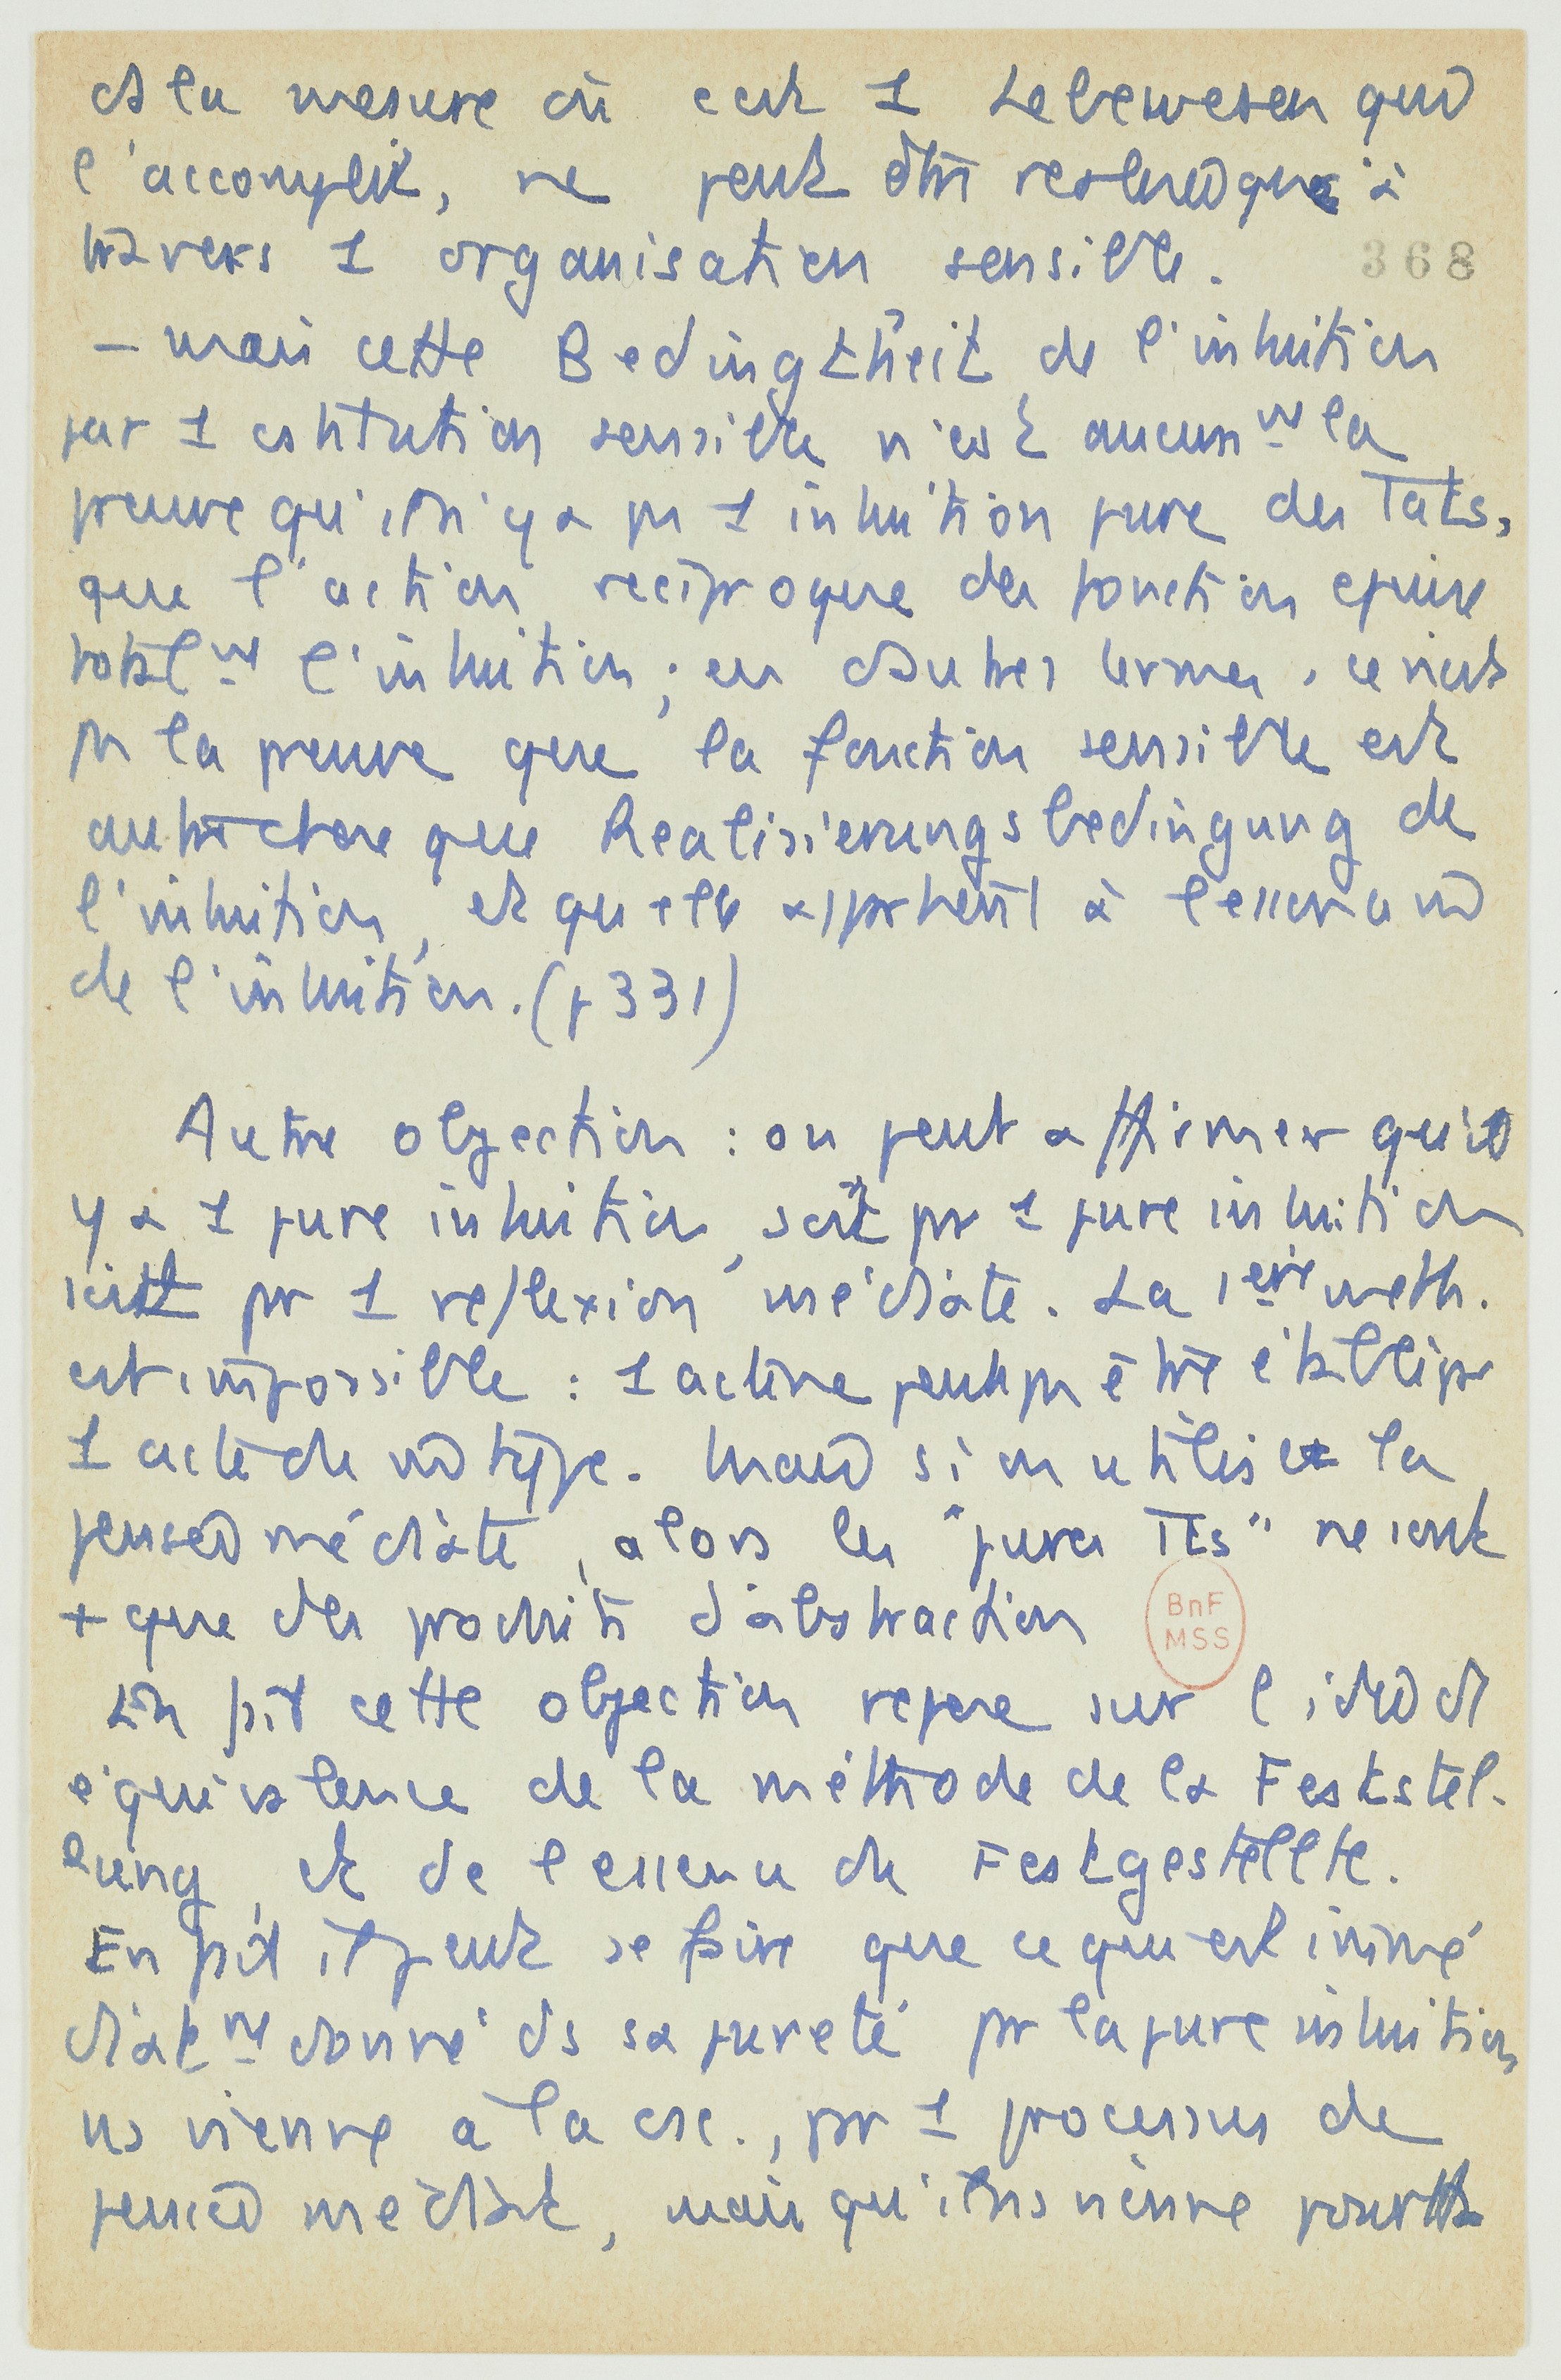 ds la mesure où c'est 1 Lebewesen qui
l'accomplit, ne peut être réalisée qu'à
travers 1 organisation sensible.
368
– mais cette Bedingtheit de l'intuition
par 1 constitution sensible n'est aucunmt la
preuve qu'il n'y a pas 1 intuition pure des Tats,
que l'action réciproque des fonction épuise
totalmt l'intuition ; en d'autres termes, ce n'est
pas la preuve que la fonction sensible est
autre chose que Realisierungsbedingung de
l'intuition, et qu'elle appartient à l'essence mê
de l'intuition. (p 331)
Autre objection : on peut affirmer qu'il
y a 1 pure intuition, soit par 1 pure intuition
soit par 1 réflexion médiate. La 1ère meth.
est impossible : 1 acte ne peut pas être établi par
1 acte de mê type. Mais si on utilise la
pensée médiate, alors les "pures Tts" ne sont
+ que des produits d'abstraction
En fait cette objection repose sur l'idée d
équivalence de la méthode de la Feststel-
lung, et de l'essence du Festgestellte.
En fait il peut se faire que ce qui est immé
diatmt donné ds sa pureté par la pure intuition,
ns vienne à la csc., par 1 processus de
pensée médiat, mais qu'il ns vienne pourtt
BnF
MSS